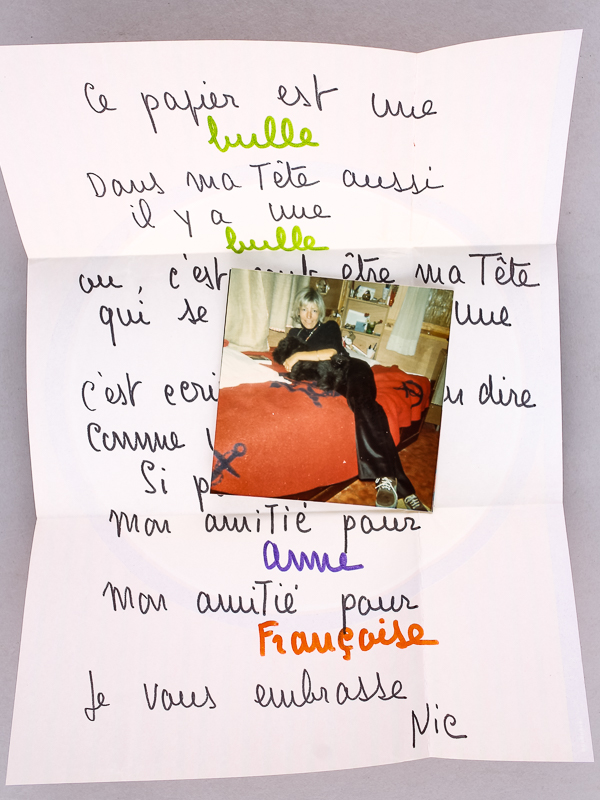 Ce papier est une
bulle
Dans ma Tête aussi
il y a une
bulle
ou, c'est être ma Tête
qui se une
c'est ecri dire
Comme
Si p
mon amiTié pour
anne
mon amiTié pour
Françoise
Je vous embrasse
Nic